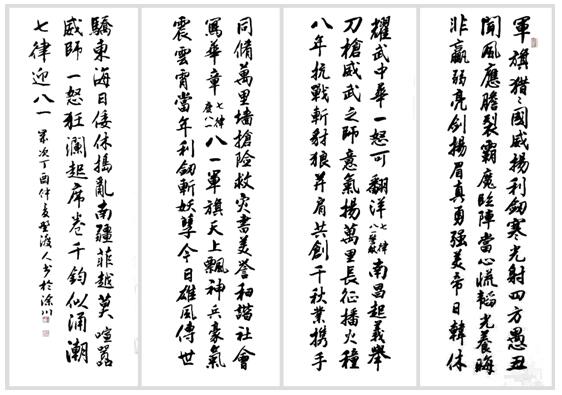 軍旗猎々國威揚利劍寒光射四方愚丑
聞風應膽裂霸魔臨陣當心慌韜光養晦
非羸弱亮劍揚眉真勇强美帝日韓休
耀武中華一怒可翻洋七律八一歌南昌起義舉
刀槍威武之師意氣揚萬里長征播火種
八年抗戰斬豺狼並肩共創千秋業携手
同脩萬里墻搶險救灾書美誉和諧社會
寫華章七律慶八一八一軍旗天上飄神兵豪氣
震雲霄當年利劍斬妖孽今日雄風傳世
驕東海日倭休搗亂南疆菲越莫喧囂
威師一怒狂瀾起席卷千鈞似涌潮
七律迎八一歲次丁酉仲夏人书於深川